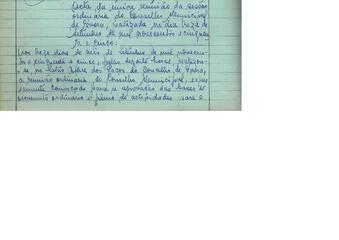 Acta da única reunião da sessão
ordinária do Conselho Municipal
de Évora, realizada no dia treze de
setembro de mil novecentos e cinquen-
ta e cinco:
Aos treze dias do mês de setembro de mil novecen-
tos e cinquenta e cinco, pelas dezoito horas, realizou-
se no Salão Nobre dos Paços do Concelho de Évora,
a reunião ordinária do Conselho Municipal, expres-
samente convocada para a aprovação das bases do
orçamento ordinário e plano de actividades para o